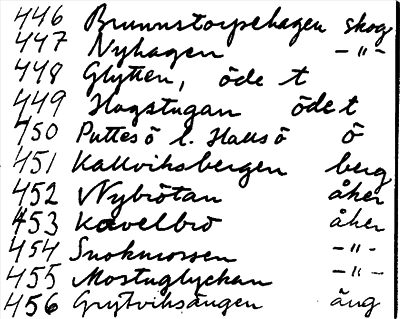 446 Brunnstorpehagen skog
447 Nyhagen -"-
448 Glytten, öde t
449 Hagstugan öde t
450 Puttesö l. Hallsö ö
451 Kallviksbergen berg
452 Nybrötan åker
453 Kavelbro åker
454 Snokmossen -"-
455 Mostuglyckan -"-
456 Grytviksängen äng